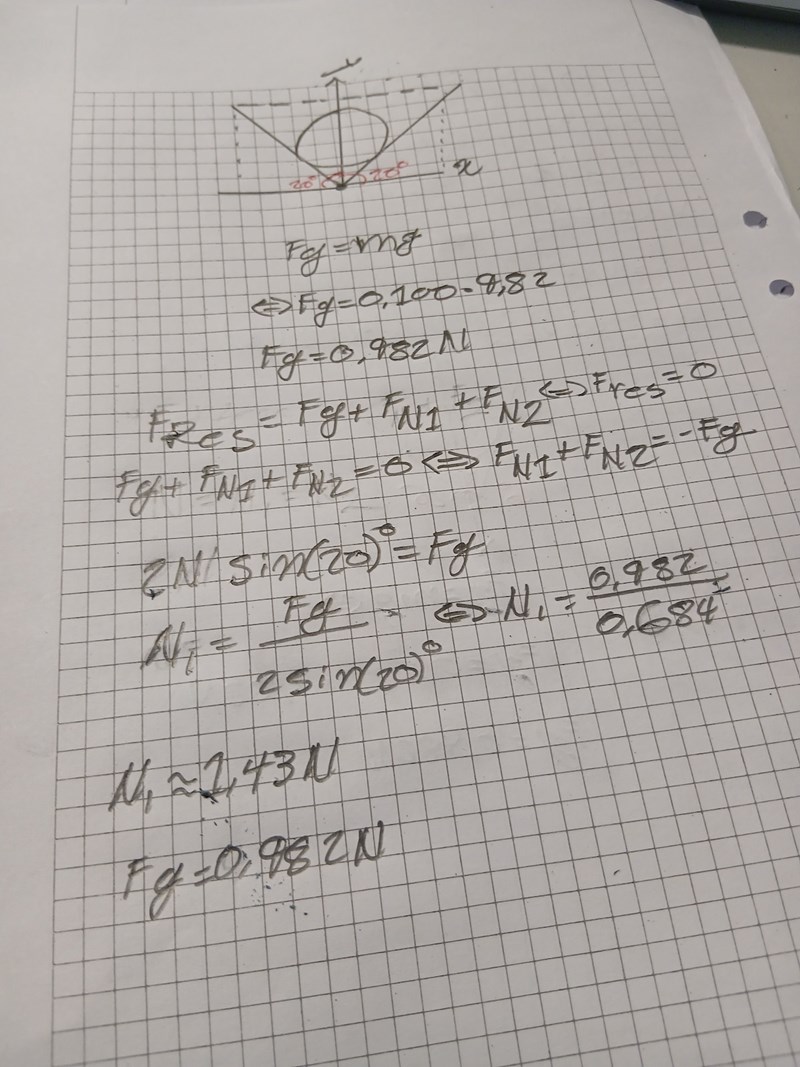 y
x
20° 20°
Fg=mg
⇔Fg=0,100·9,82
Fg=0,982N
FRes=Fg+FN1+FN2⇔Fres=0
Fg+FN1+FN2=0⇔FN1+FN2=-Fg
2N sin(20)°=Fg
N1=Fg/2sin(20)° ⇔N1=0,982/0,684=
N1≈1,43N
Fg=0,982N